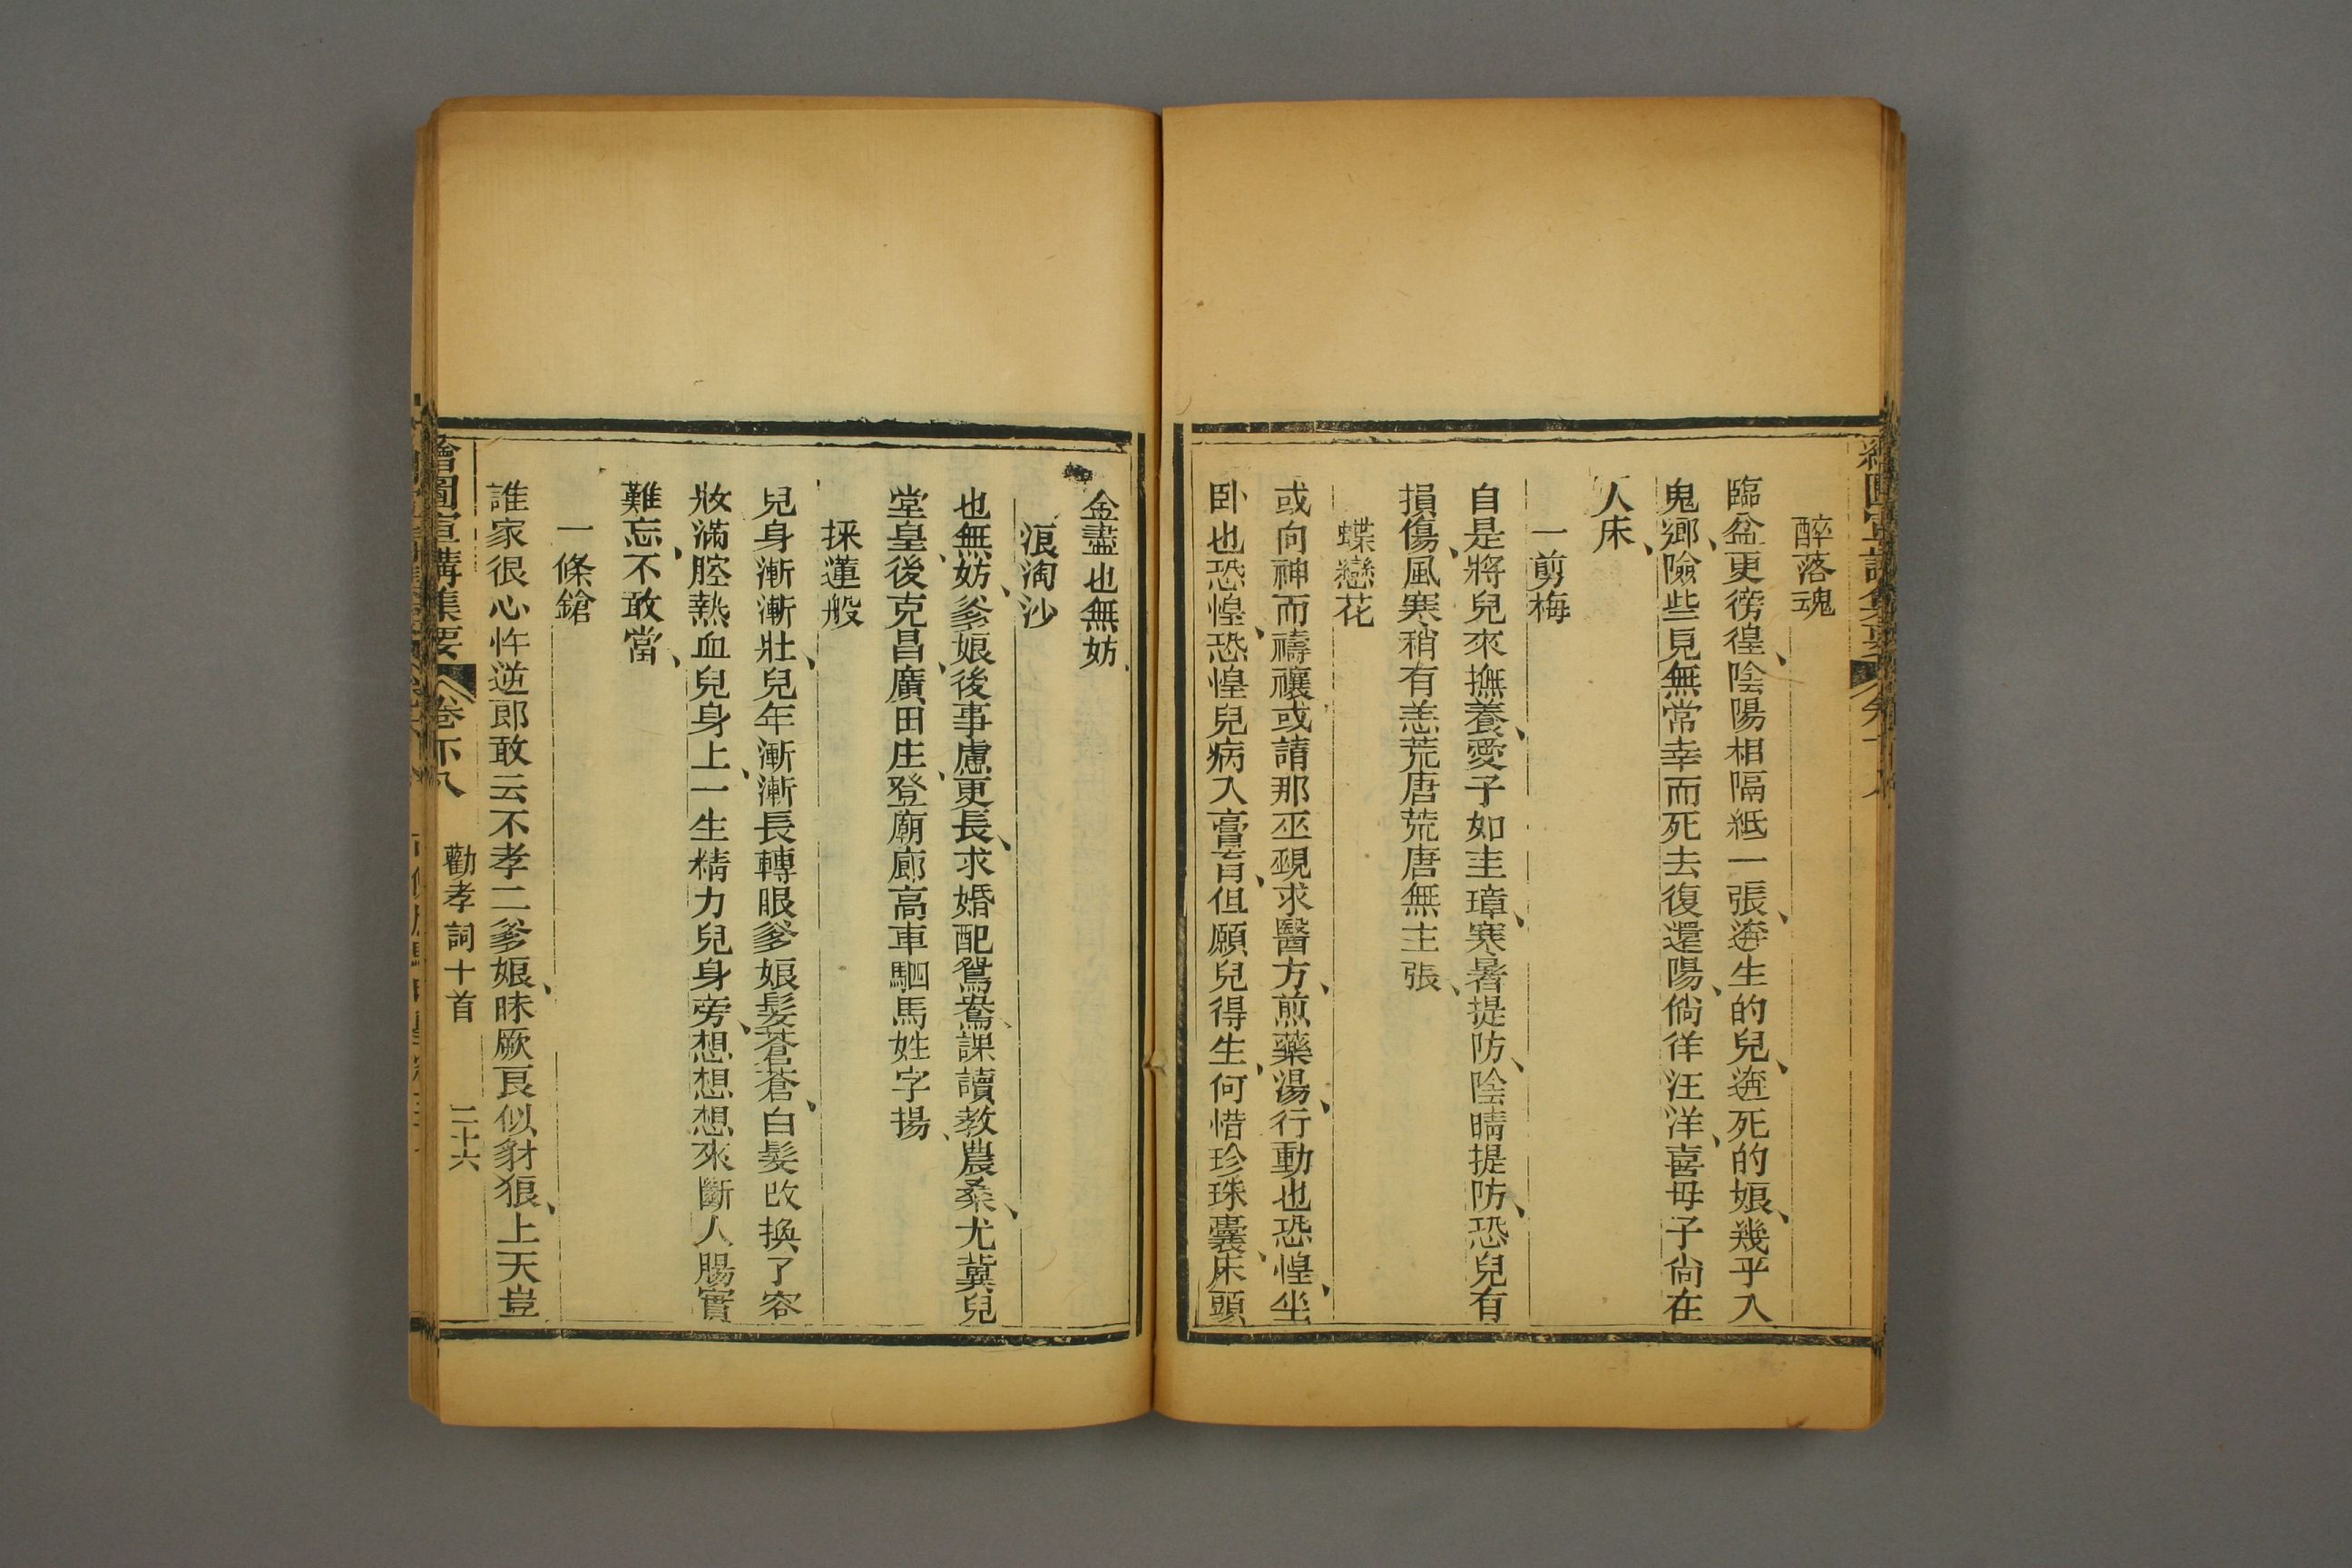 醉落魂
臨盆更徬徨、陰陽相隔紙一張、遊生的兒、遊死的娘、幾乎入
鬼鄉、險些見無常幸而死去復還陽、倘徉汪洋、喜毋子尙在
人床、
一剪梅
自是將兒來撫養、愛子如圭璋、寒暑提防、陰晴提防、恐兒有
損傷、風寒稍有恙荒唐荒唐無主張、
蝶戀花
或向神而禱禳、或請那巫覡求醫方、煎藥湯、行動也恐惶、坐
卧也恐惶、恐惶兒病入膏肓、但願兒得生、何惜珍珠囊、床頭
金盡也無妨、
浪淘沙
也無妨、爹娘後事慮更長、求婚配鴛鴦、課讀教農桑、尤冀兒
堂皇、後克昌、廣田庄、登廟廊高車駟馬姓字揚、
採蓮般
兒身漸漸壯、兒年漸漸長轉眼爹娘髮蒼蒼、白髮改換了容
妝滿腔熱血兒身上、一生精力兒身旁、想想想來斷人腸實
難忘、不敢當、
一條鎗
誰家很心忤逆郎敢云不孝二爹娘、昧厥良似豺狼、上天豈
繪圖宣講集要
勸孝詞十首
二十六